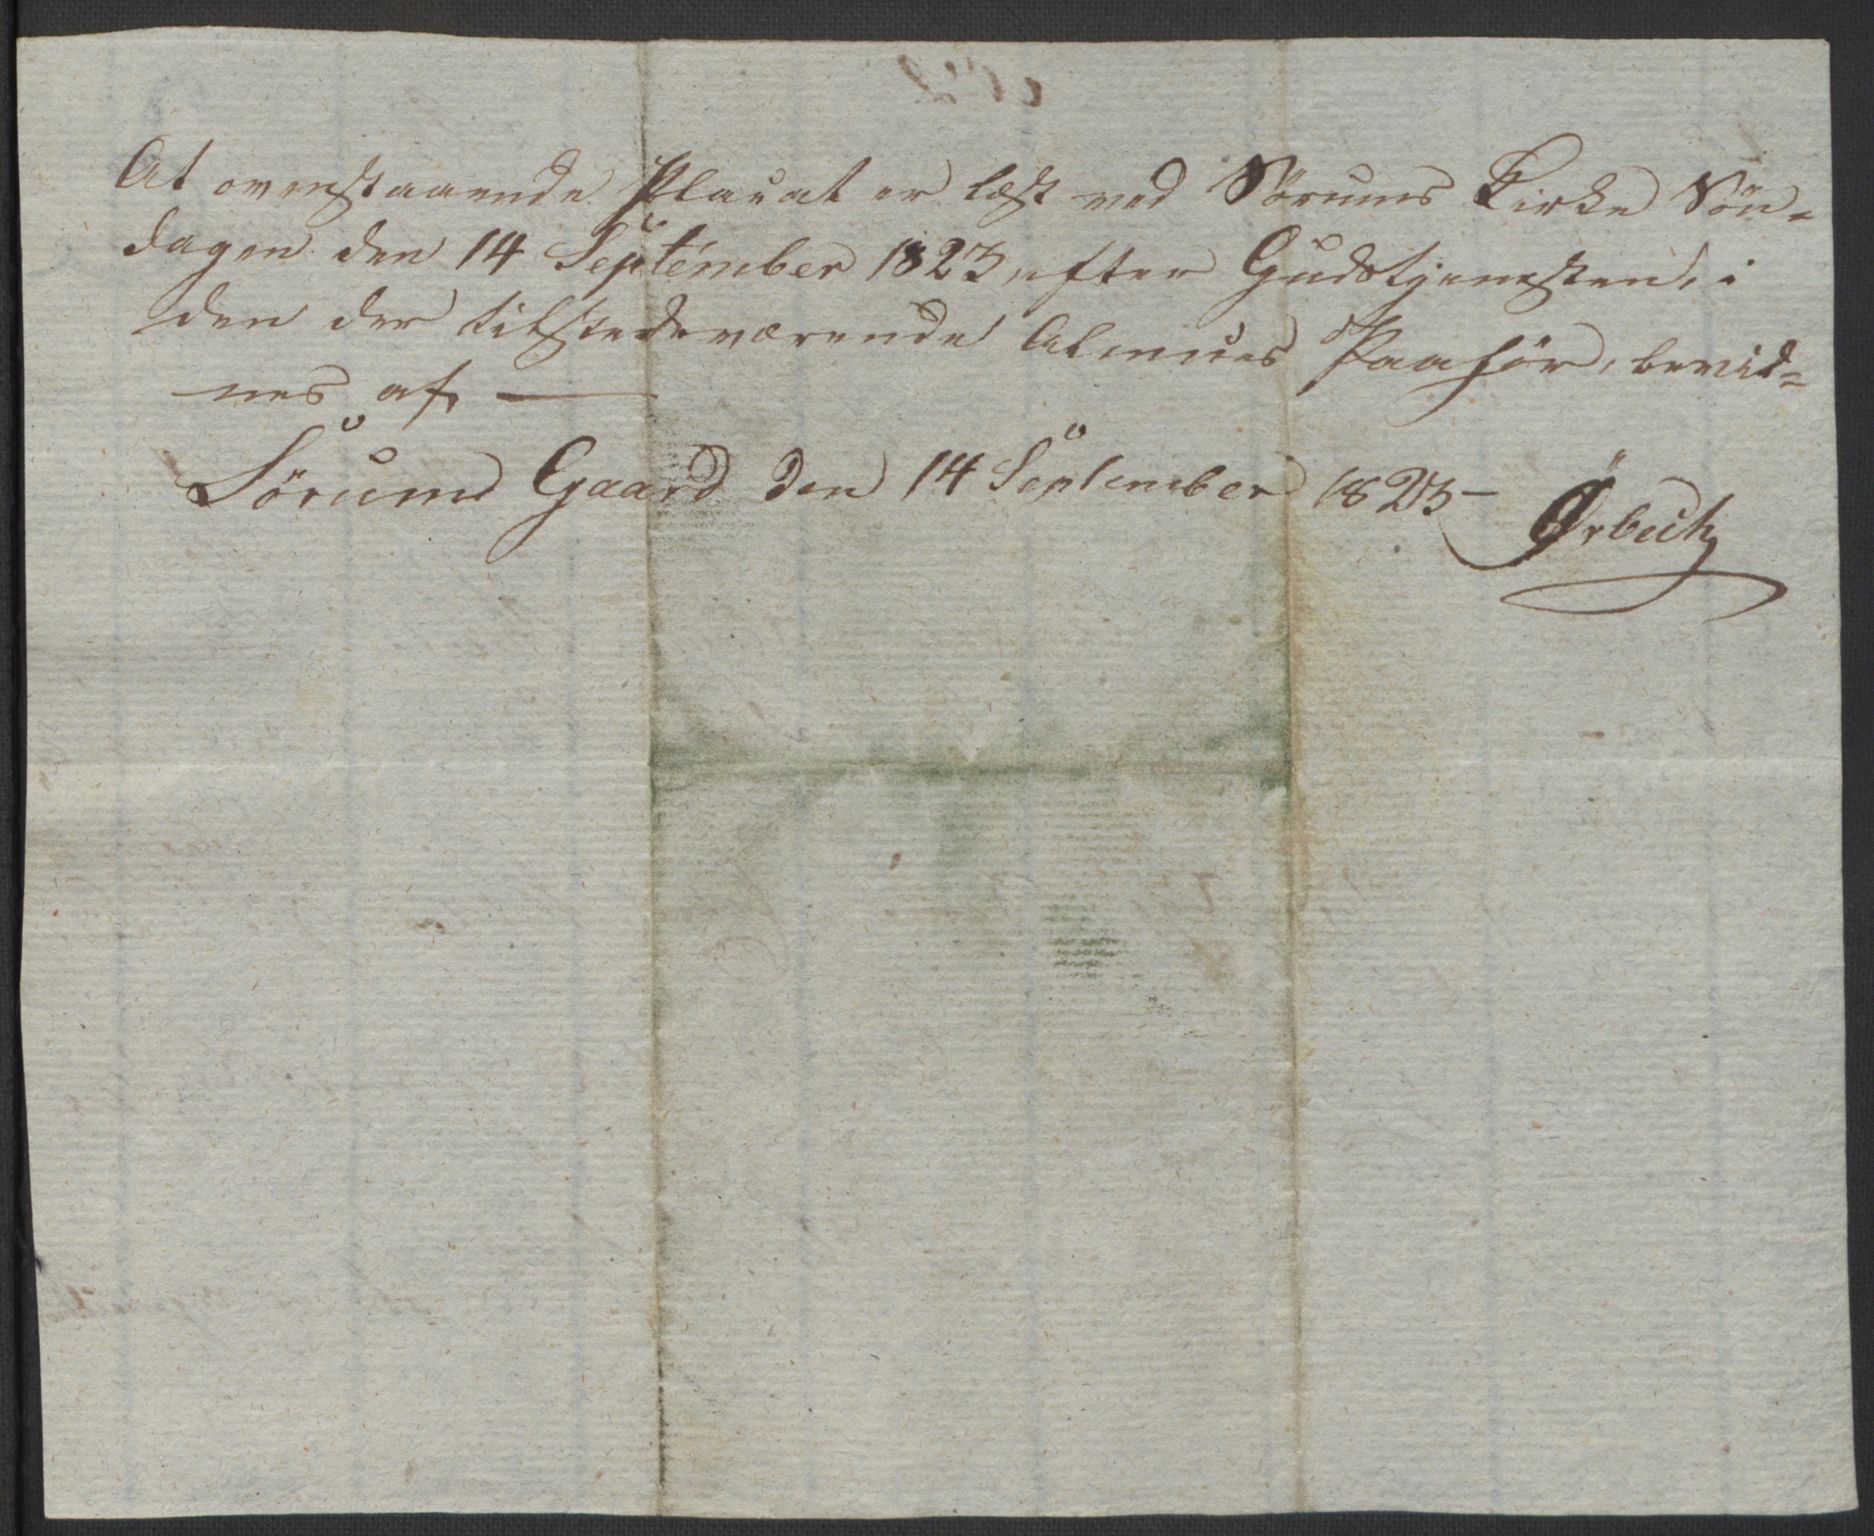 At ovenstaaende Placat er læst ved Sørums Kirke Søn-
dagen den 14 September 1823, efter Gudstjenesten, i
den der tilstedeværende Almues Paahør, bevid-
nes af. —
Sørums Gaard den 14 September 1823 — Ørbech